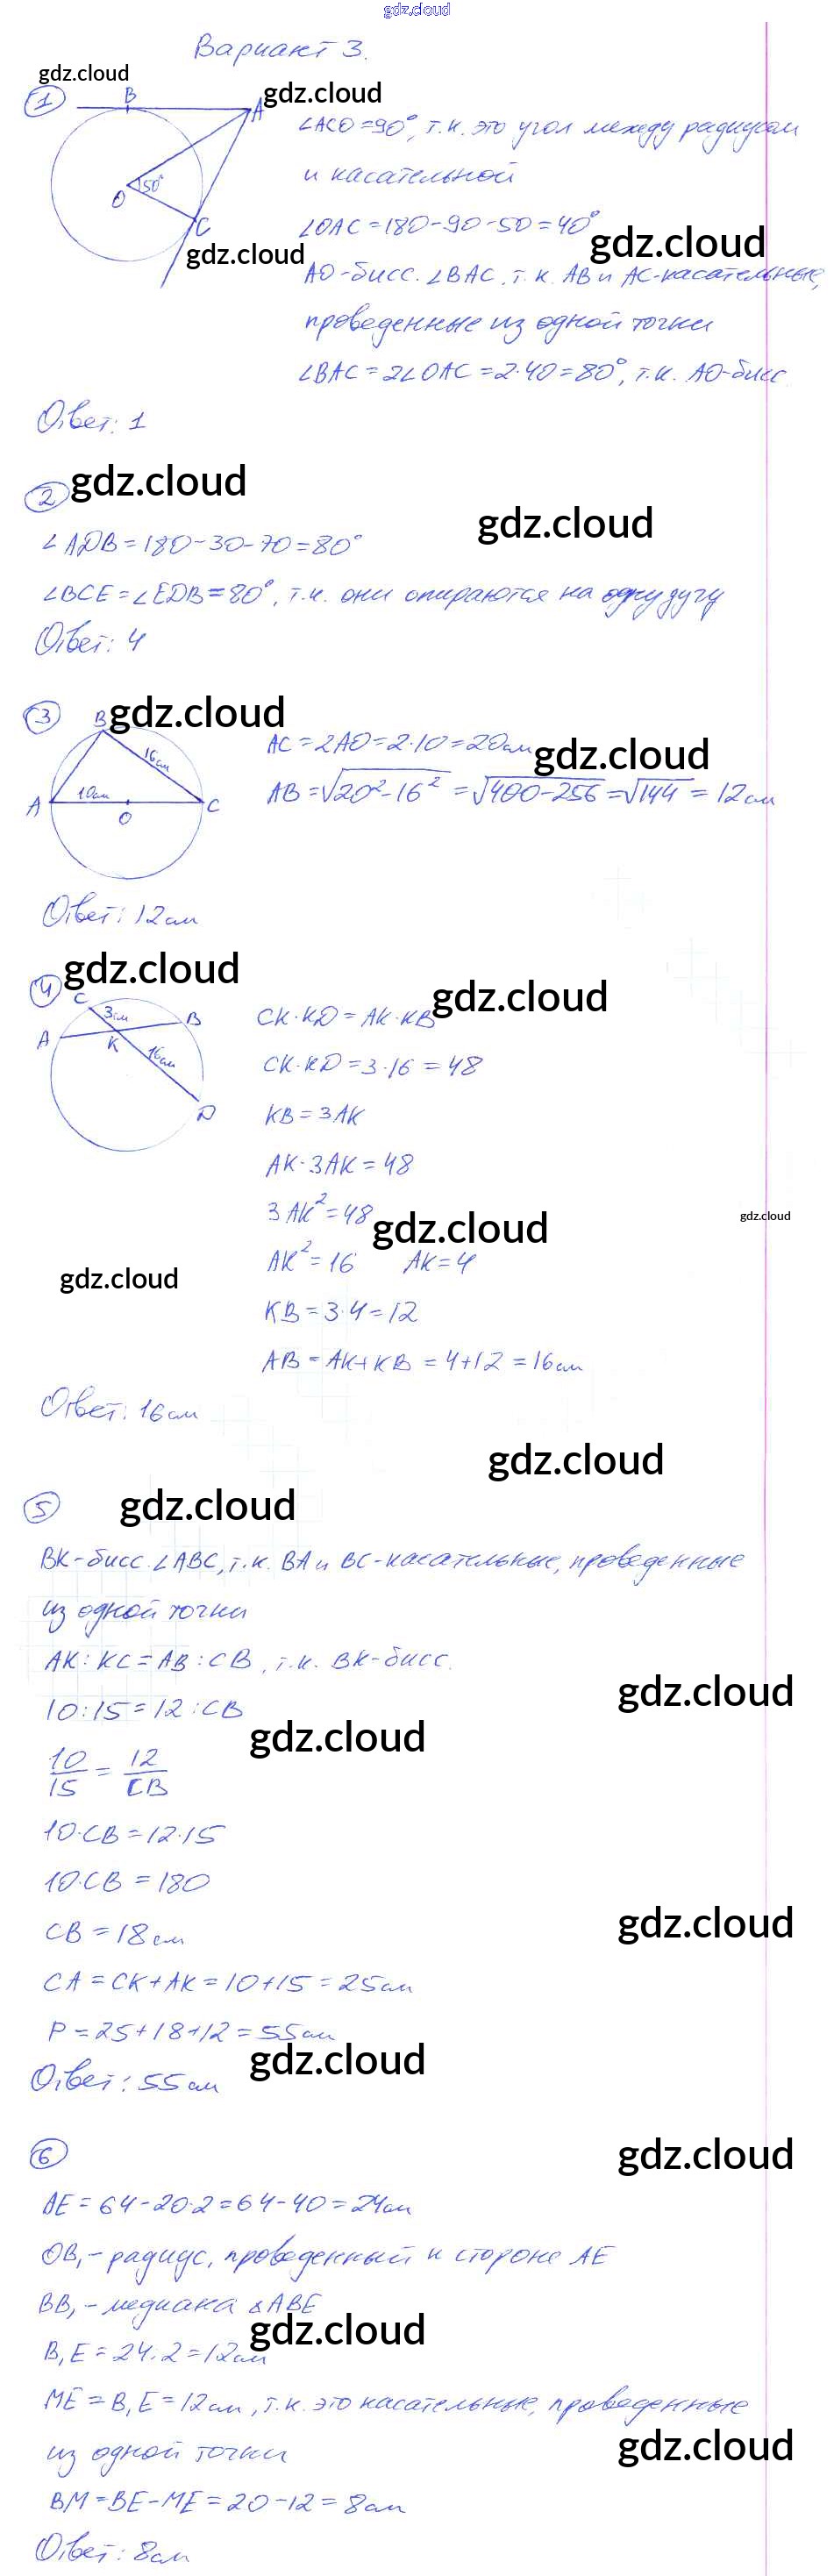 gdz.cloud
Вариант 3.
gdz.cloud
1
B
A
gdz.cloud
O
50°
C
gdz.cloud
∠ACO=90°, т.к. это угол между радиусом
и касательной
∠OAC=180-90-50=40°
gdz.cloud
AO-бисс. ∠BAC, т.к. AB и AC-касательные,
проведенные из одной точки
∠BAC=2∠OAC=2·40=80°, т.к. AO-бисс.
Ответ: 1
2
gdz.cloud
gdz.cloud
∠ADB=180-30-70=80°
∠BCE=∠EDB=80°, т.к. они опираются на одну дугу
Ответ: 4
3
B
gdz.cloud
16см
A
10см
O
C
AC=2AO=2·10=20см
gdz.cloud
AB=√20²-16²=√400-256=√144=12см
Ответ: 12см
4
gdz.cloud
C
3см
B
A
K
16см
D
gdz.cloud
CK·KD=AK·KB
CK·KD=3·16=48
KB=3AK
AK·3AK=48
3AK²=48
gdz.cloud
gdz.cloud
AK²=16 AK=4
gdz.cloud
KB=3·4=12
AB=AK+KB=4+12=16см
Ответ: 16см
gdz.cloud
5
gdz.cloud
BK-бисс. ∠ABC, т.к. BA и BC-касательные, проведенные
из одной точки
AK:KC=AB:CB, т.к. BK-бисс.
gdz.cloud
10:15=12:CB
gdz.cloud
10/15=12/CB
10·CB=12·15
10·CB=180
gdz.cloud
CB=18см
CA=CK+AK=10+15=25см
P=25+18+12=55см
gdz.cloud
Ответ: 55см
6
gdz.cloud
AE=64-20·2=64-40=24см
OB₁-радиус, проведенный к стороне AE
BB₁-медиана ∆ABE
gdz.cloud
B₁E=24:2=12см
ME=B₁E=12см, т.к. это касательные, проведенные
gdz.cloud
из одной точки
BM=BE-ME=20-12=8см
Ответ: 8см